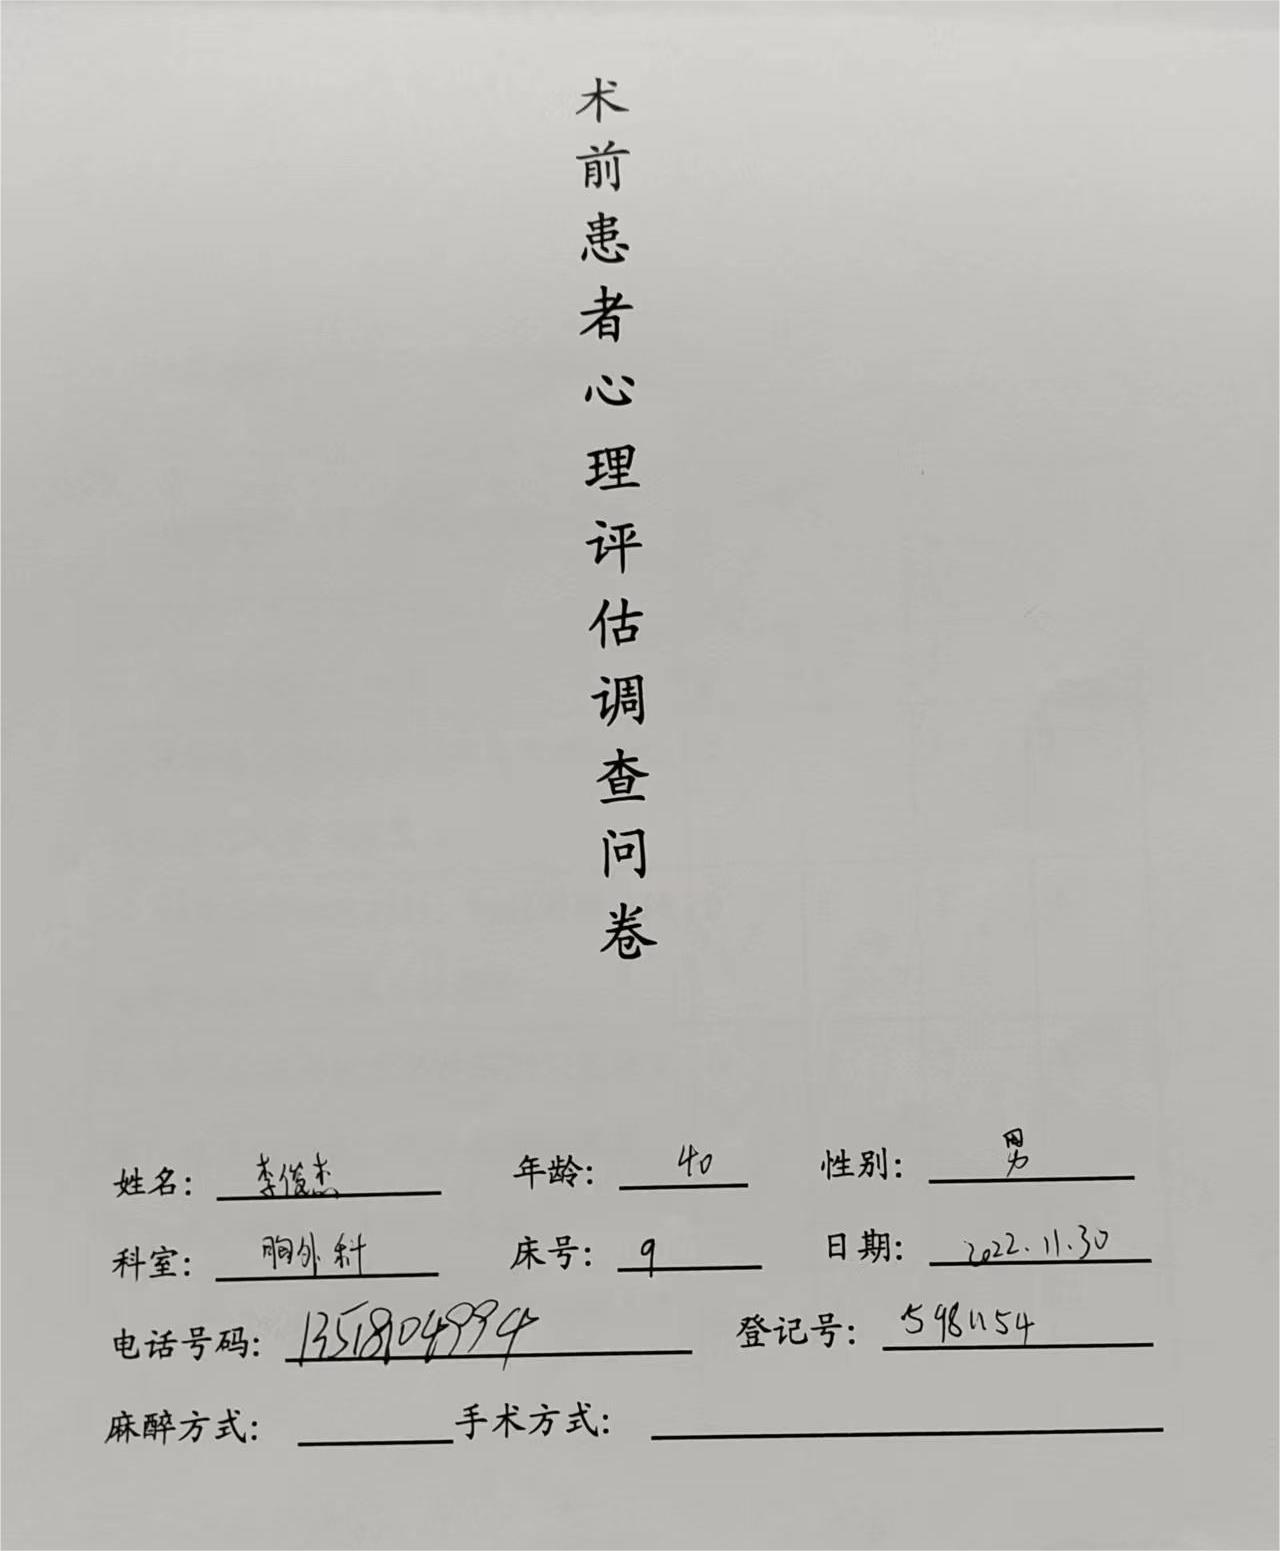 术前患者心理评估调查问卷
姓名: 李俊杰 年龄: 40 性别: 男
科室: 胸外科 床号: 9 日期: 2022.11.30
电话号码: 13518104994 登记号: 5981154
麻醉方式: 手术方式: